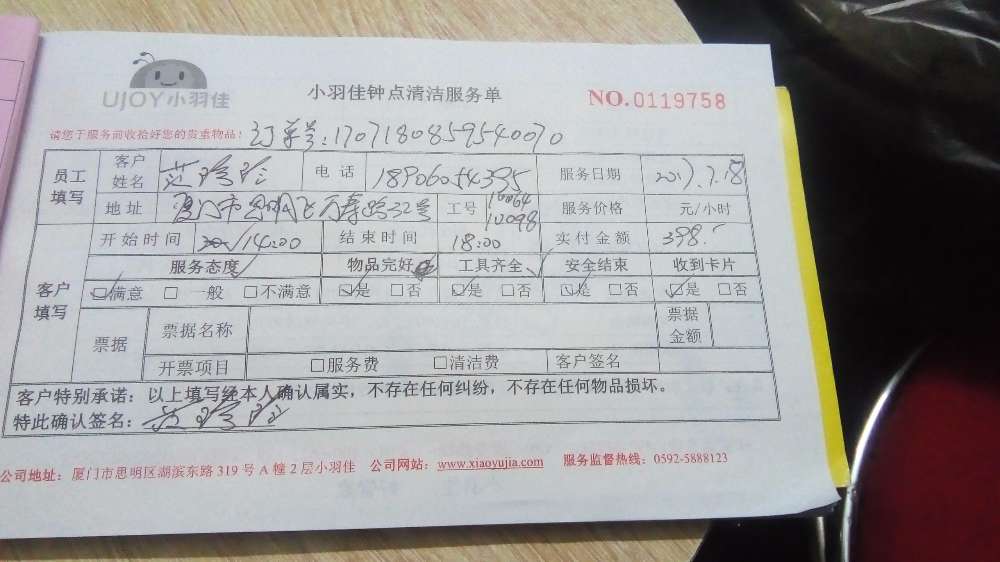 UJOY小羽佳
小羽佳钟点清洁服务单
NO.0119758
请您于服务前收拾好您的贵重物品!
订单号:17071808595540070
员工填写
客户姓名 范 电话 18906054395 服务日期 2017.7.18
地址 厦门市思明区万寿路32号 工号 10064 10098 服务价格 元/小时
客户填写
开始时间 14:00 结束时间 18:00 实付金额 398.
服务态度 物品完好 工具齐全 安全结束 收到卡片
☑满意 □一般 □不满意 ☑是 □否 ☑是 □否 ☑是 □否 ☑是 □否
票据 票据名称 票据金额
开票项目 □服务费 □清洁费 客户签名
客户特别承诺:以上填写经本人确认属实,不存在任何纠纷,不存在任何物品损坏。
特此确认签名:范
公司地址:厦门市思明区湖滨东路 319 号 A 幢 2 层小羽佳 公司网站:www.xiaoyujia.com 服务监督热线:0592-5888123